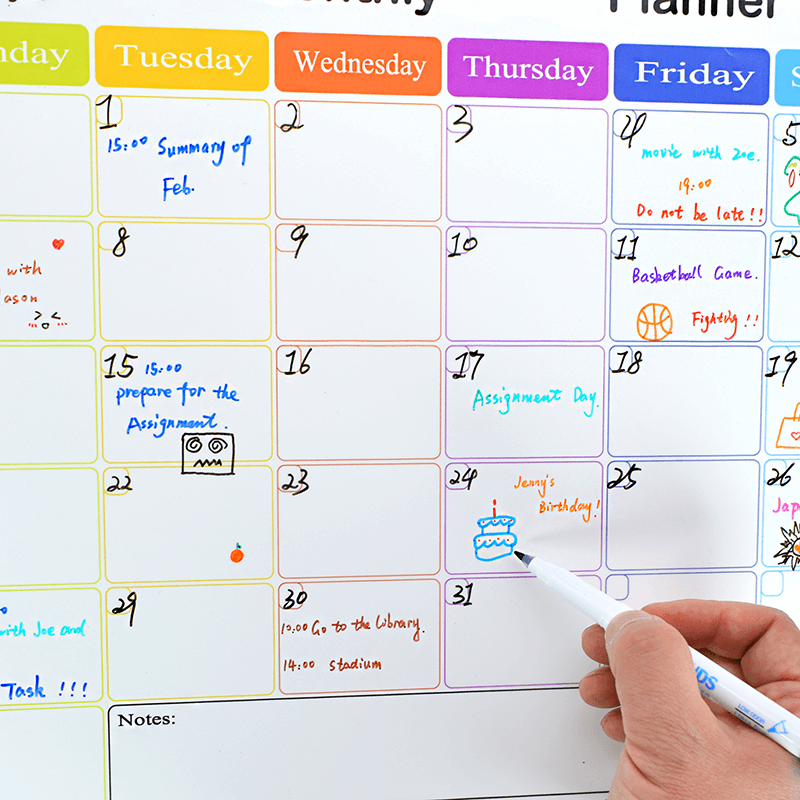 Planner
Tuesday
Wednesday
Thursday
Friday
1
15:00 Summary of
Feb.
2
3
4
movie with Zoe.
19:00
Do not be late!!
5
with
8
9
10
11
Basketball Game.
Fighting!!
12
15 15:00
prepare for the
Assignment.
16
17
Assignment Day.
18
19
22
23
24
Jenny's
Birthday!
25
26
with Joe and
Task !!!
29
30
10:00 Go to the Library.
14:00 stadium
31
Notes: